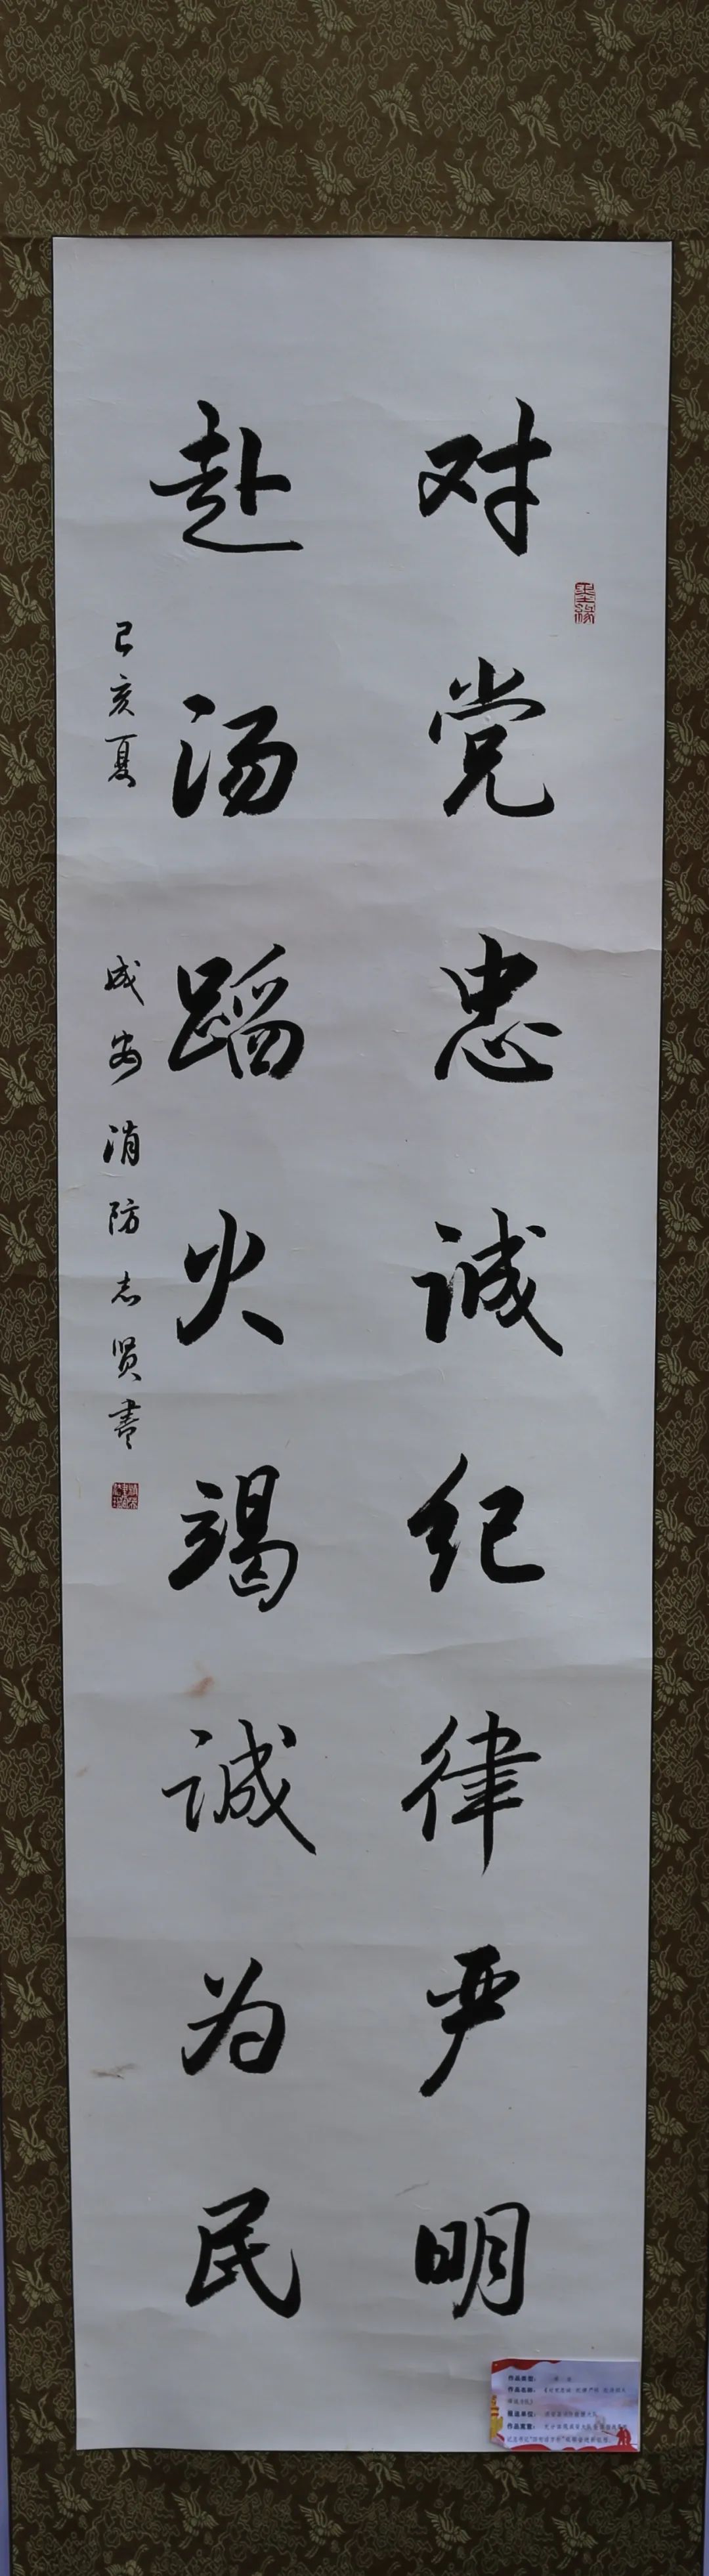 对党忠诚纪律严明
赴汤蹈火竭诚为民
己亥夏 成安消防志贤书
墨缘
作品类型：
作品名称：
报送单位：
作品寓意：